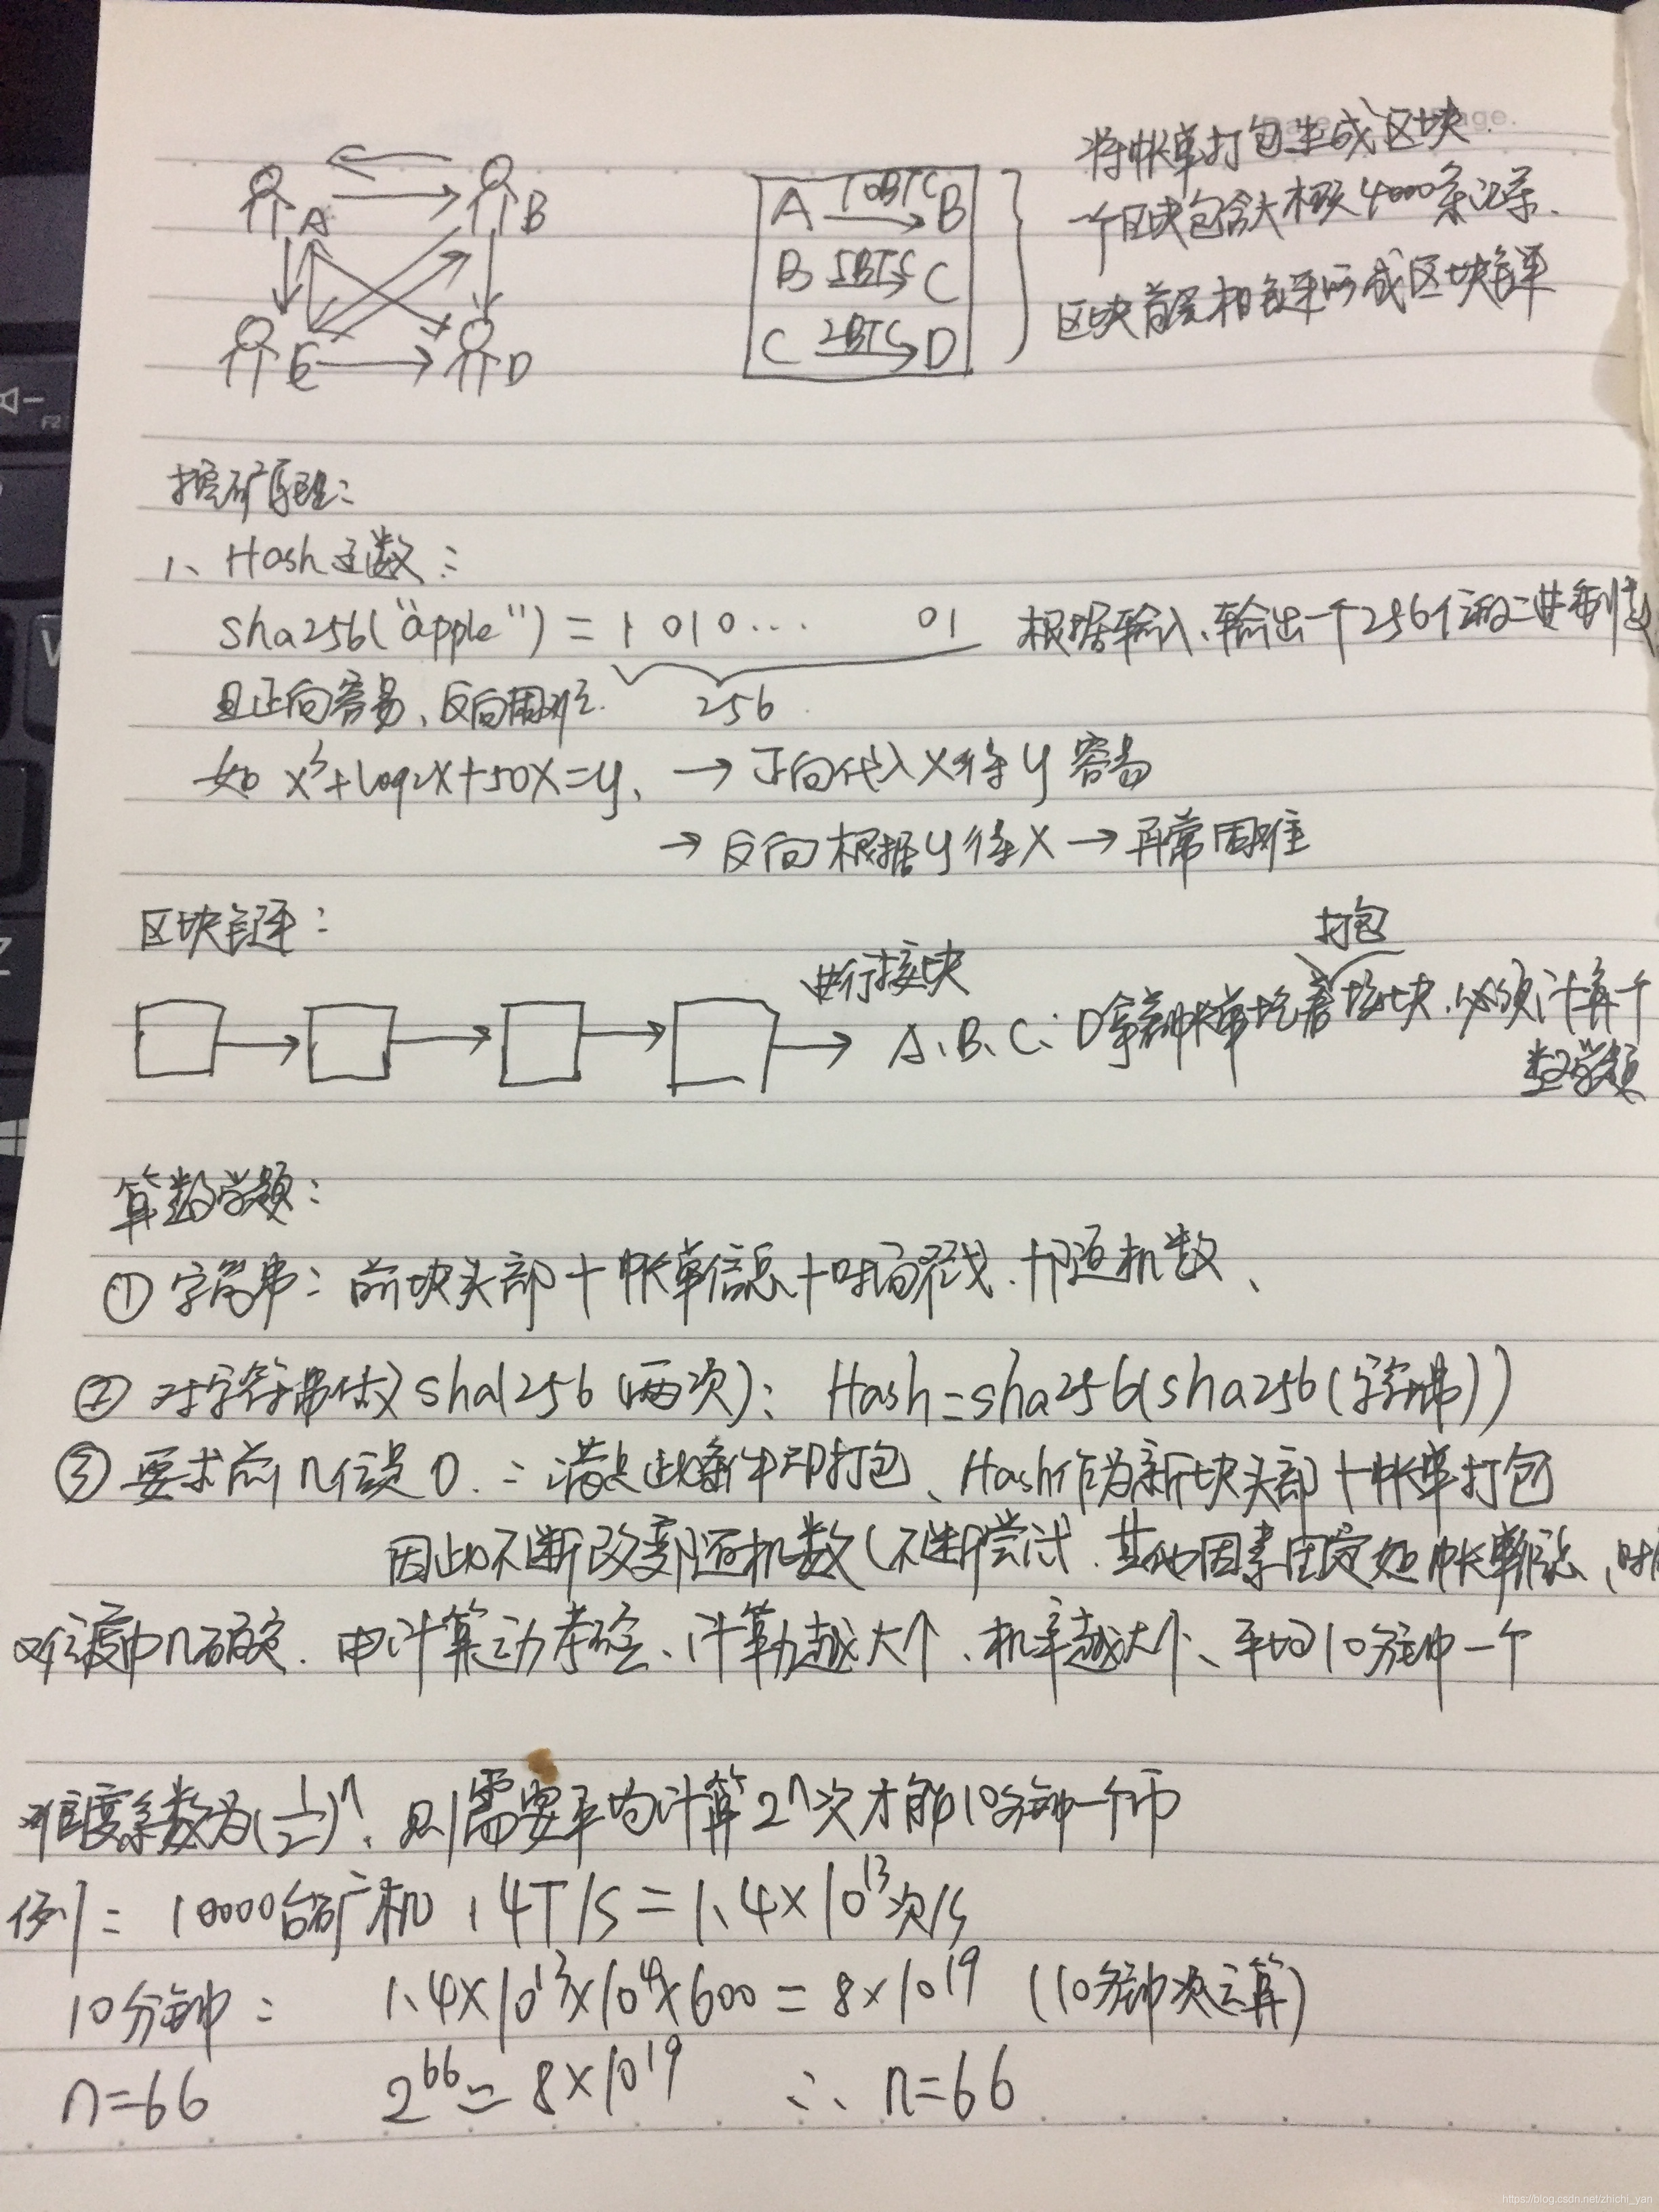 Page.
将帐单打包生成区块.
一个区块包含大概4000条记录.
区块首尾相链形成区块链
A 10BTC B
B 5BTC C
C 2BTC D
A
B
C
D
挖矿原理:
1、Hash函数:
sha256("apple") = 1 010... 01 根据输入、输出一个256位的二进制数
且正向容易、反向困难. 256
如 x³+log2x+50x=y、 → 正向代入x得y容易
→ 反向根据y得x → 非常困难
区块链:
打包
进行接块
→ A、B、C、D拿着帐单 接块、必须计算个
数学题
算数学题:
① 字符串: 前块头部 + 帐单信息 + 时间戳 + 随机数、
② 对字符串做sha256(两次): Hash=sha256(sha256(字符串))
③ 要求前n位是0. : 满足此条件即打包、Hash作为新块头部+帐单打包
因此不断改变随机数(不断尝试. 其他因素固定如帐单信息、时
难度由n确定. 由计算力 、计算力越大个、机率越大个、平均10分钟一个
难度系数为(1/2)ⁿ、则需要平均计算2ⁿ次才能10分钟一个币
例: 10000台矿机 14T/S = 1.4×10¹³次/S
10分钟: 1.4×10¹³×10⁴×600 = 8×10¹⁹ (10分钟次运算)
n=66 2⁶⁶ = 8×10¹⁹ ∴ n=66
F2
W
Z
https://blog.csdn.net/zhichi_yan